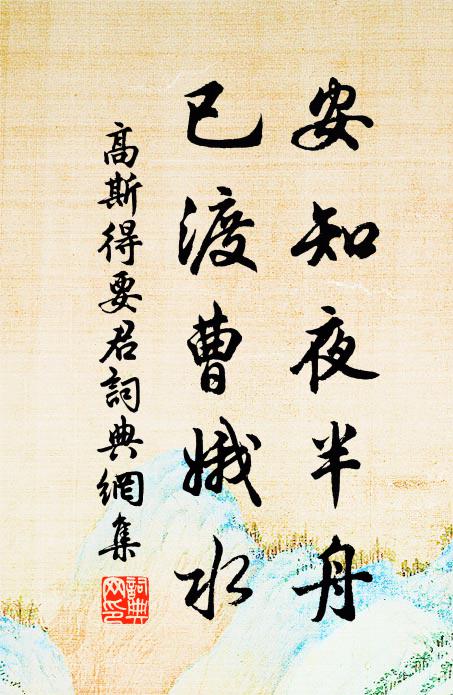 安知夜半舟
已渡曹娥水
高斯得要君詞典網集